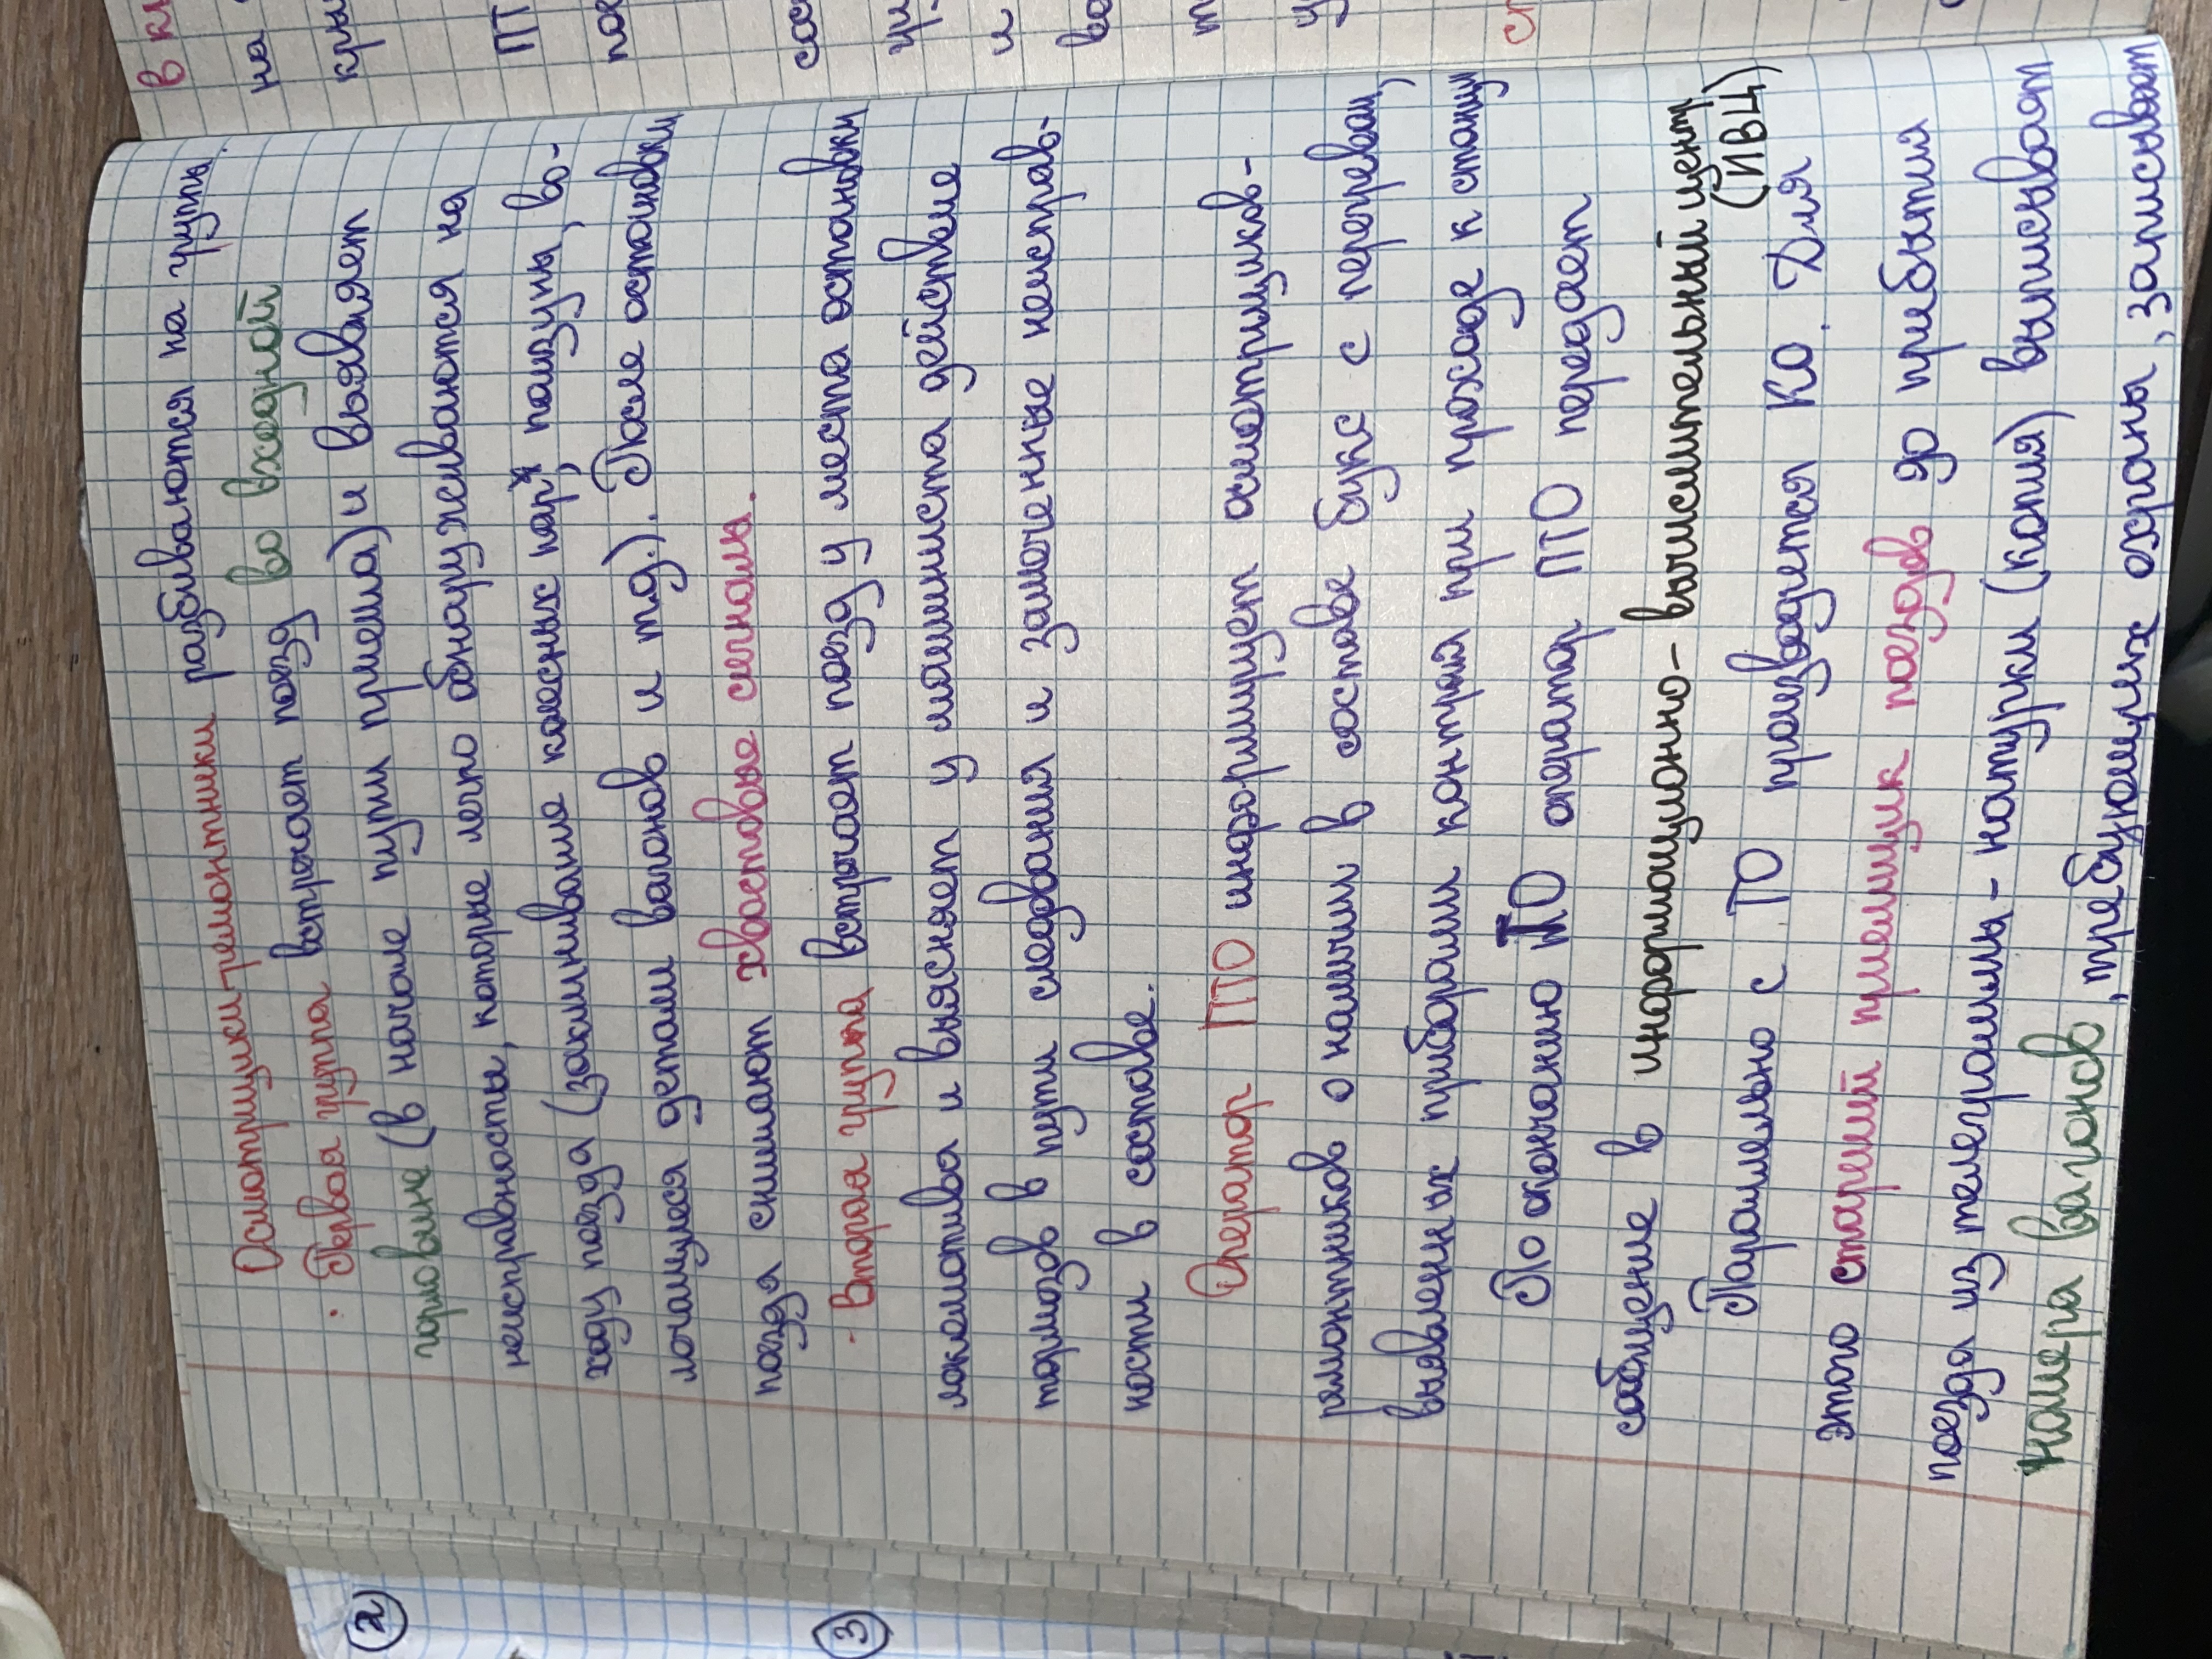 Осмотрщики-ремонтники разбиваются на группы.
· Первая группа встречает поезд во входной
горловине (в начале пути приема) и выявляет
неисправности, которые легко обнаруживаются на
ходу поезда (заклинивание колесных пар, ползуны, во-
лочащиеся детали вагонов и т.д.). После остановки
поезда снимают хвостовые сигналы.
- Вторая группа встречает поезд у места остановки
локомотива и выясняет у машиниста действие
тормозов в пути следования и замеченные неисправ-
ности в составе.
Оператор ПТО информирует осмотрщиков-
ремонтников о наличии в составе букс с перегревом,
выявленных приборами контроля при проходе к станции
По окончанию ТО оператор ПТО передает
сообщение в информационно-вычислительный центр
(ИВЦ)
Параллельно с ТО производится КО. Для
этого старший приемщик поездов до прибытия
поезда из телеграммы-натурки (копия) выписывают
номера вагонов, требующих охраны, записывают
2
3
в
на
кры
ПТ
пое
сос
и
во
т
у